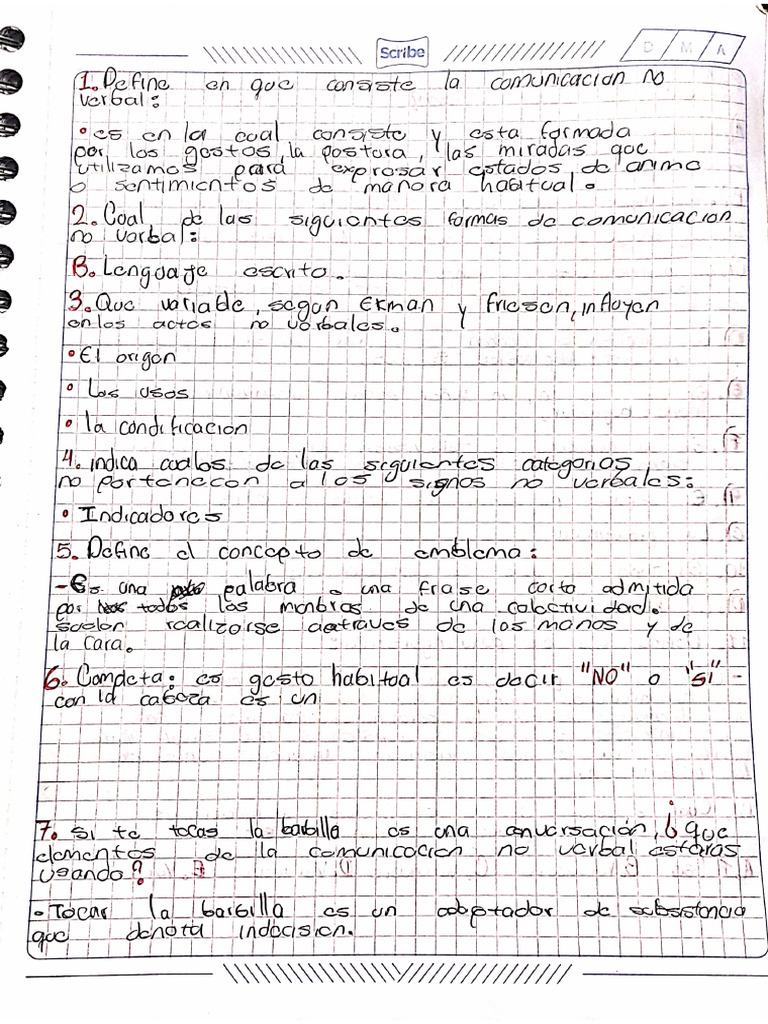 Scribe
D M A
1. Define en que consiste la comunicacion no
verbal:
• es en la cual consiste y esta formada
por los gestos, la postura, las miradas que
utilizamos para expresar estados de animo
o sentimientos de manera habitual.
2. Cual de las siguientes formas de comunicacion
no verbal:
B. Lenguaje escrito.
3. Que variable, segun Ekman y friesen, influyen
en los actos no verbales.
• El origen
• Los usos
• la condificacion
4. indica cuales de las siguientes categorias
no pertenecen a los signos no verbales:
• Indicadores
5. Define el concepto de emblema:
- Es una palabra o una frase corta admitida
por todos los menbros de una colectividad.
suelen realizarse aetraves de los manos y de
la cara.
6. Completa: es gesto habitual es decir "NO" o "SI"
con la cabeza es un
7. Si te tocas la barbilla es una conversación, ¿que
elementos de la comunicacion no verbal estaras
usando?
• Tocar la barbilla es un adaptador de subsistencia
que denota indecision.